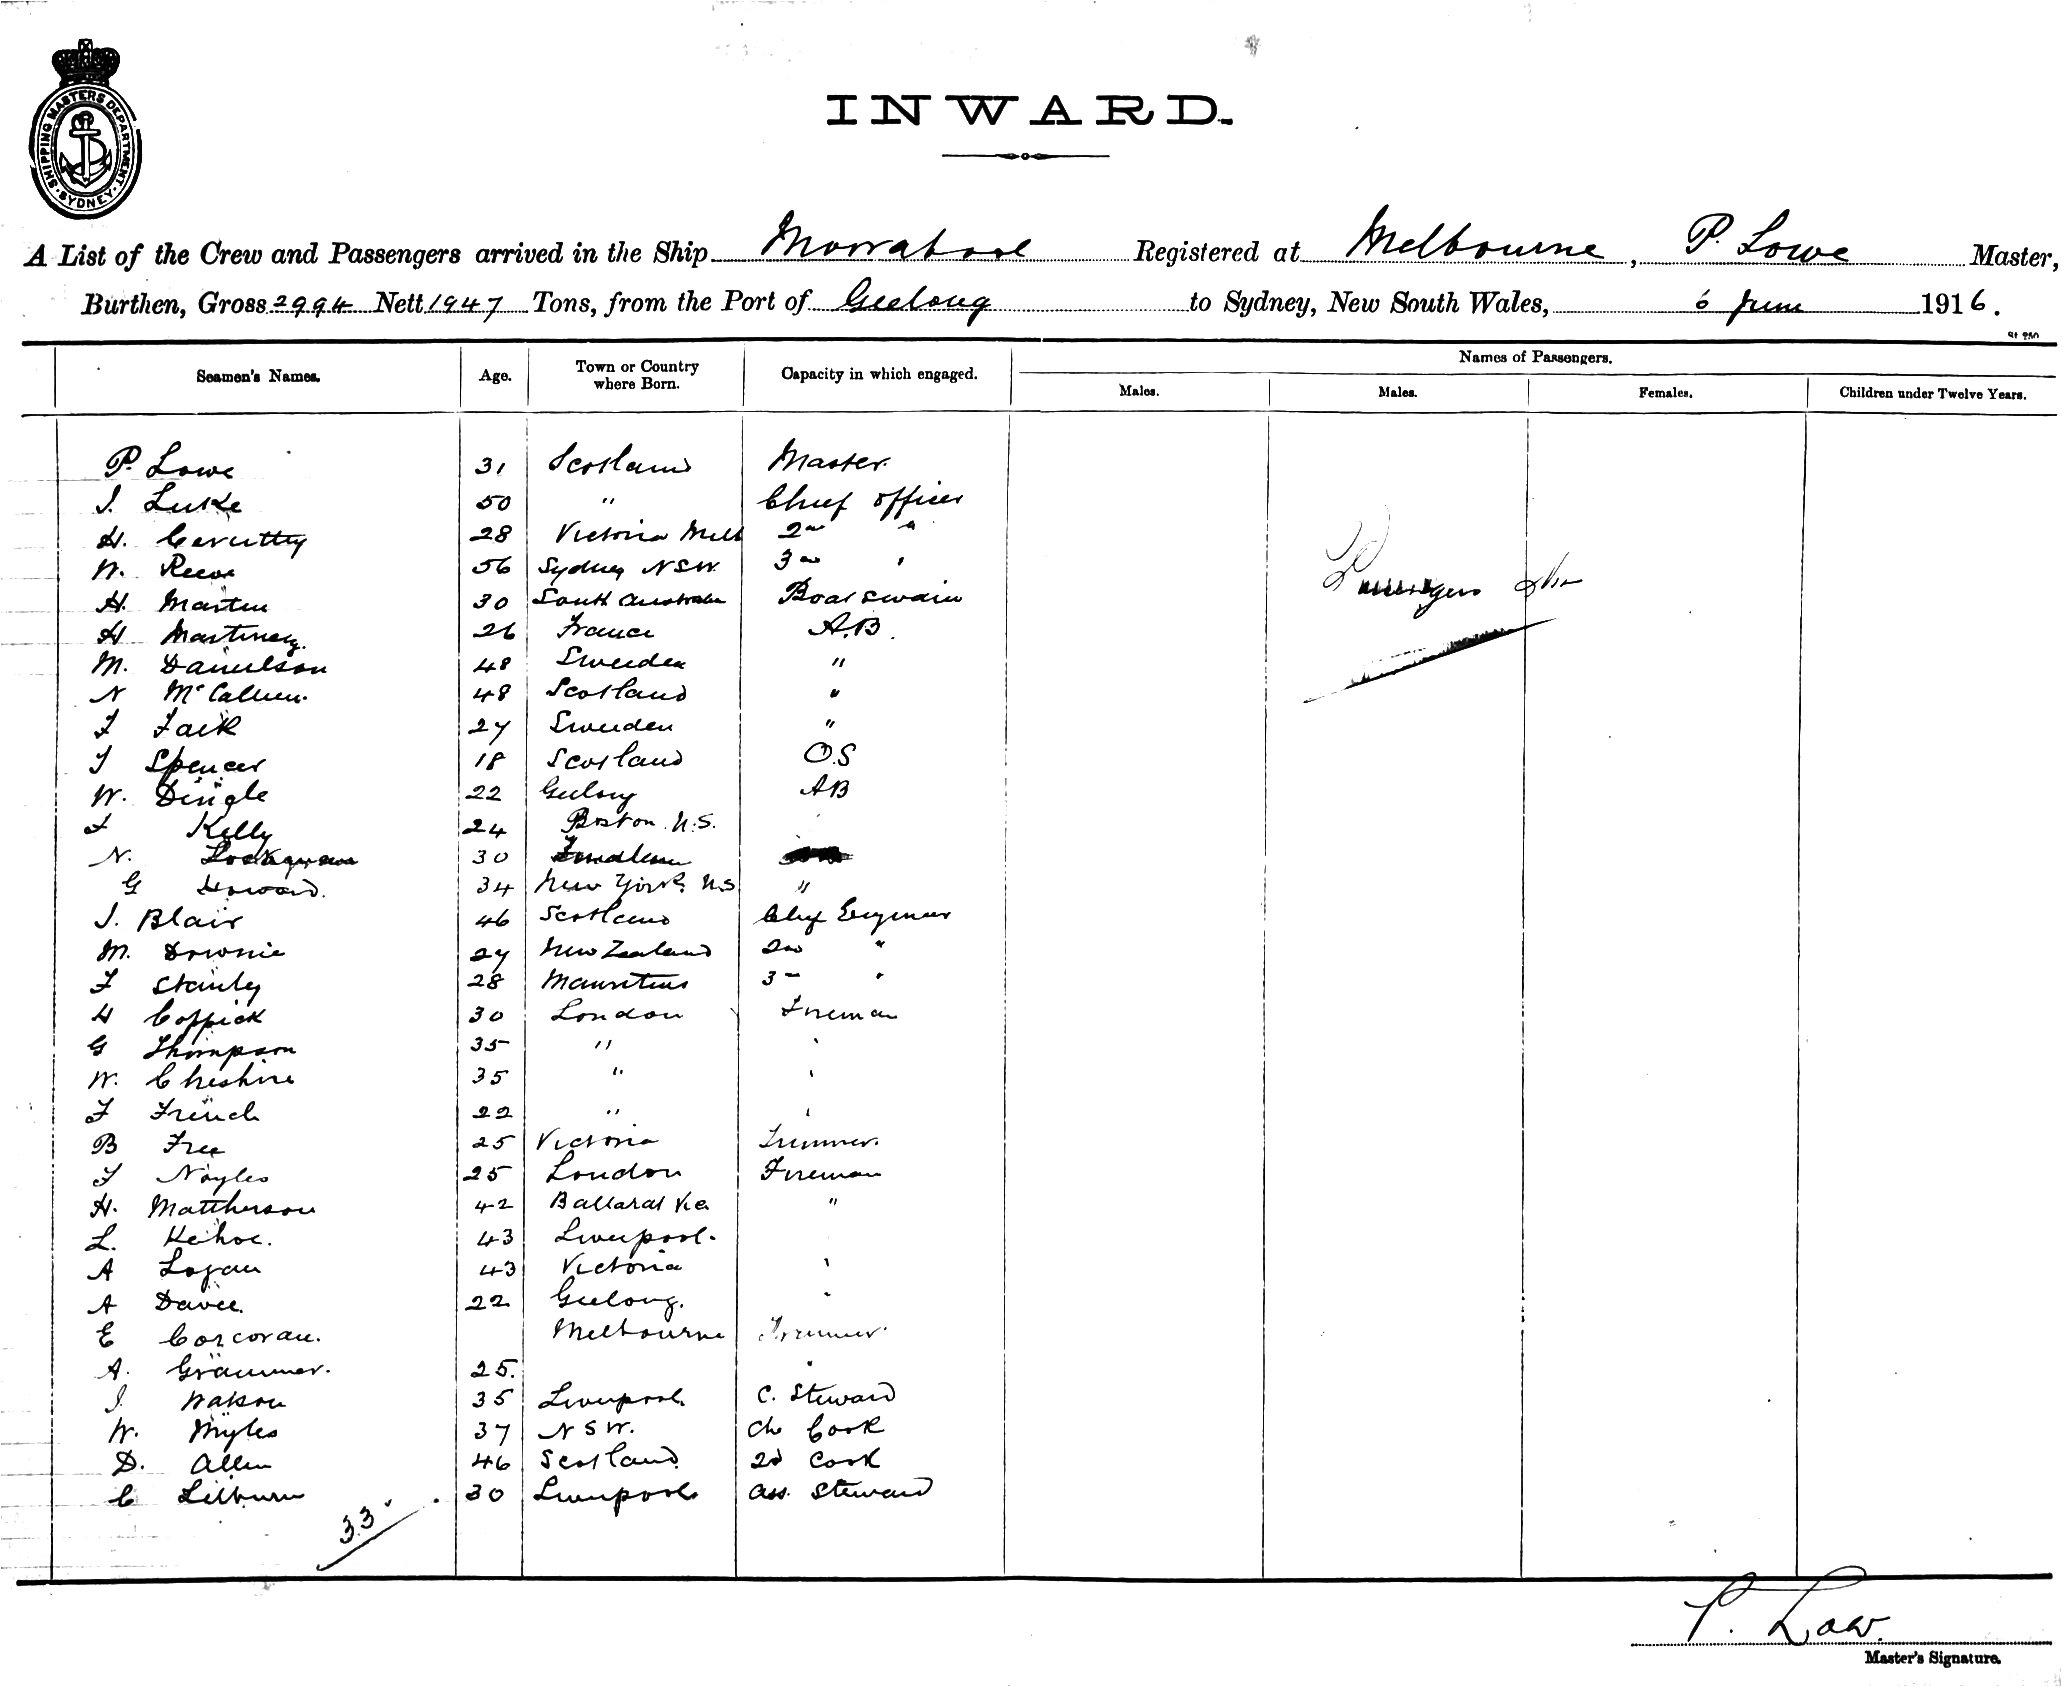 SHIPPING MASTERS DEPARTMENT · SYDNEY ·
INWARD.
A List of the Crew and Passengers arrived in the Ship Moorabool Registered at Melbourne, P. Lowe Master,
Burthen, Gross 2994 Nett 1947 Tons, from the Port of Geelong to Sydney, New South Wales, 6 June 1916.
Names of Passengers.
Seamen's Names. Age. Town or Country where Born. Capacity in which engaged. Males. Males. Females. Children under Twelve Years.
P. Lowe 31 Scotland Master
J. Luke 50 " Chief Officer
H. 28 Victoria Melb 2nd "
W. Reeve 56 Sydney NSW. 3rd "
H. Martin 30 South Australia Boatswain
H Martinez. 26 France A.B.
Passengers
M. Danielson 48 Sweden "
N McCallum. 48 Scotland "
F Falk 27 Sweden "
J Spencer 18 Scotland O.S
W. Dingle 22 Geelong AB
J Kelly 24 Boston U.S.
N. 30
G Howard. 34 New York U.S "
J. Blair 46 Scotland Chief Engineer
M. Downie 27 New Zealand 2nd "
F Stanley 28 Mauritius 3rd "
H Coppick 30 London Fireman
G Thompson 35 " "
W. Cheshire 35 " "
F French 22 " "
B Free 25 Victoria Trimmer.
J Noyles 25 London Fireman
H. Mattherson 42 Ballarat Vic "
L. Kehoe. 43 Liverpool.
A Logan 43 Victoria "
A Davee. 22 Geelong. "
E Corcoran. Melbourne Trimmer.
A. Grammer. 25. "
J. Watson 35 Liverpool C. Steward
W. Myles 37 NSW. Ch Cook
D. Allen 46 Scotland 2d Cook
C Lilburn 30 Liverpool Ass. Steward
33
P. Law.
Master's Signature.